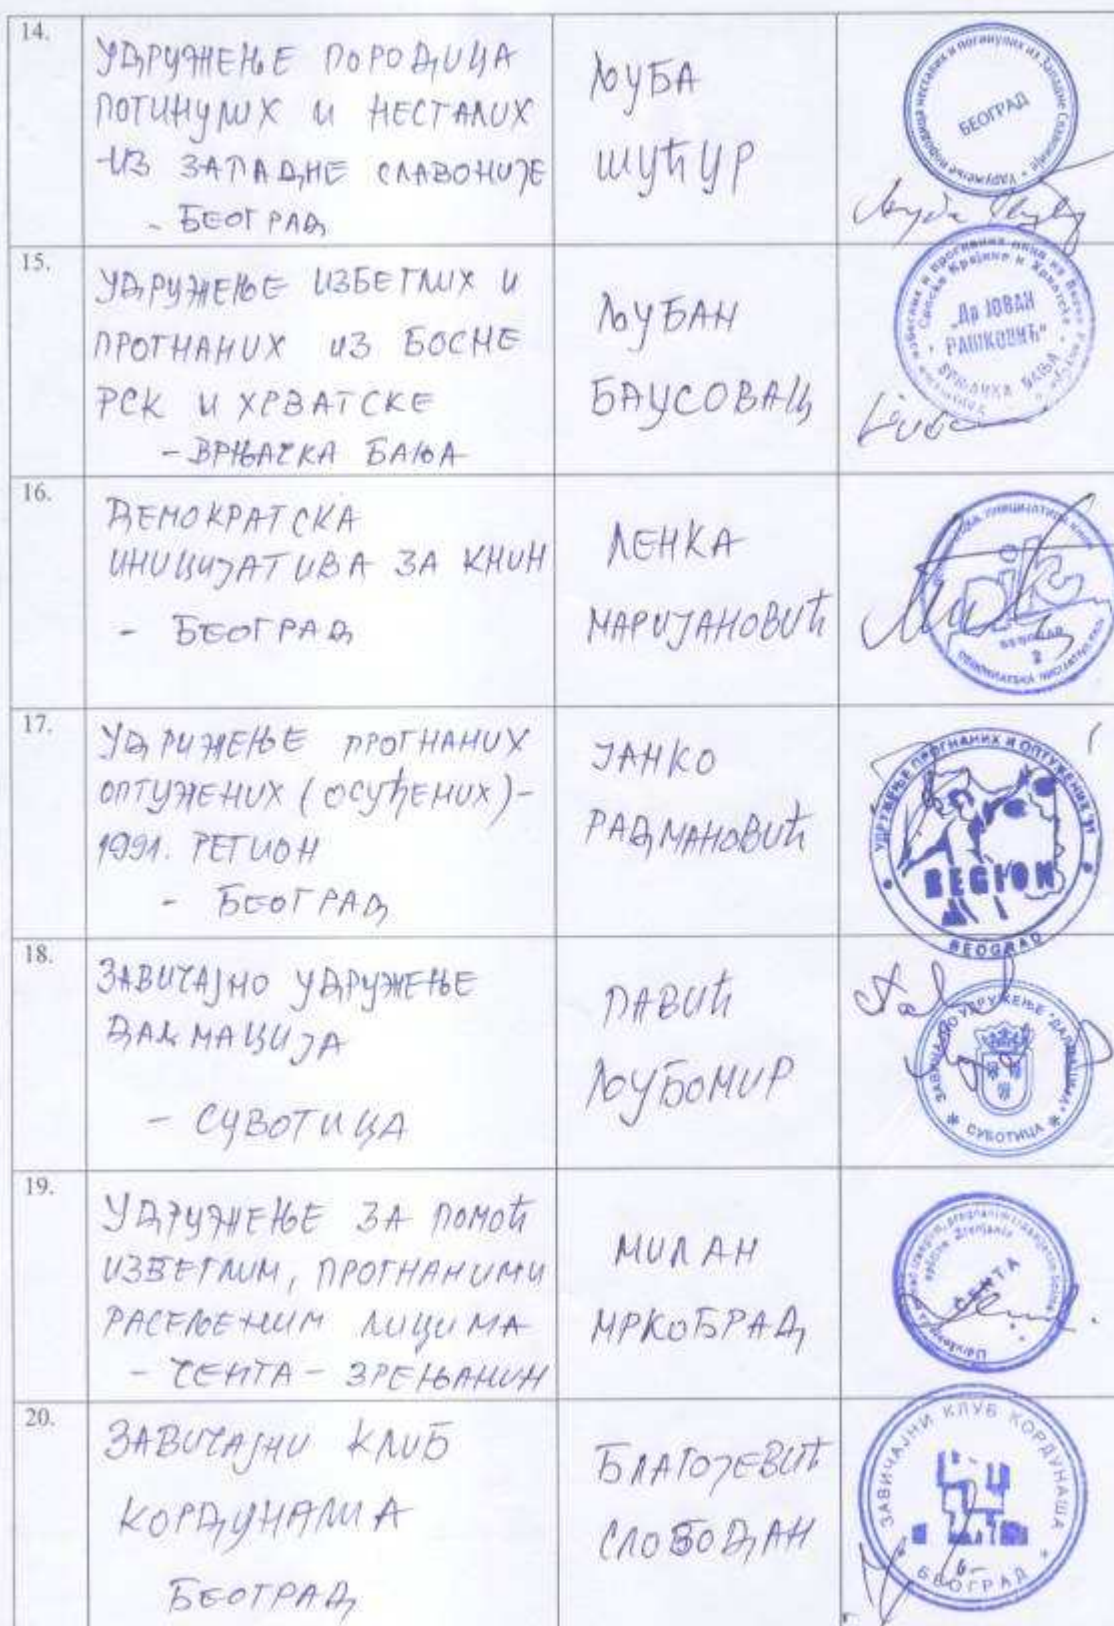 14.
УДРУЖЕЊЕ ПОРОДИЦА
ПОГИНУЛИХ И НЕСТАЛИХ
ИЗ ЗАПАДНЕ СЛАВОНИЈЕ
- БЕОГРАД
ЉУБА
ШУЋУР
Удружење породица несталих и погинулих из Западне Славоније
БЕОГРАД
15.
УДРУЖЕЊЕ ИЗБЕГЛИХ И
ПРОГНАНИХ ИЗ БОСНЕ
РСК И ХРВАТСКЕ
- ВРЊАЧКА БАЊА
ЉУБАН
БАУСОВАЦ
"Др ЈОВАН
РАШКОВИЋ"
ВРЊАЧКА БАЊА
16.
ДЕМОКРАТСКА
ИНИЦИЈАТИВА ЗА КНИН
- БЕОГРАД
ЛЕНКА
МАРИЈАНОВИЋ
2
17.
УДРИЖЕЊЕ ПРОГНАНИХ
ОПТУЖЕНИХ (ОСУЂЕНИХ) -
1991. РЕГИОН
- БЕОГРАД
ЈАНКО
РАДМАНОВИЋ
УДРУЖЕЊЕ ПРОГНАНИХ И ОПТУЖЕНИХ 91
REGION
BEOGRAD
18.
ЗАВИЧАЈНО УДРУЖЕЊЕ
ДАЛМАЦИЈА
- СУБОТИЦА
ПАВИЋ
ЉУБОМИР
ЗАВИЧАЈНО УДРУЖЕЊЕ "ДАЛМАЦИЈА"
СУБОТИЦА
19.
УДРУЖЕЊЕ ЗА ПОМОЋ
ИЗБЕГЛИМ, ПРОГНАНИМ И
РАСЕЉЕНИМ ЛИЦИМА
- ЧЕНТА - ЗРЕЊАНИН
МИЛАН
МРКОБРАД
ČENTA
20.
ЗАВИЧАЈНИ КЛУБ
КОРДУНАША
БЕОГРАД
БЛАГОЈЕВИЋ
СЛОБОДАН
ЗАВИЧАЈНИ КЛУБ КОРДУНАША
БЕОГРАД